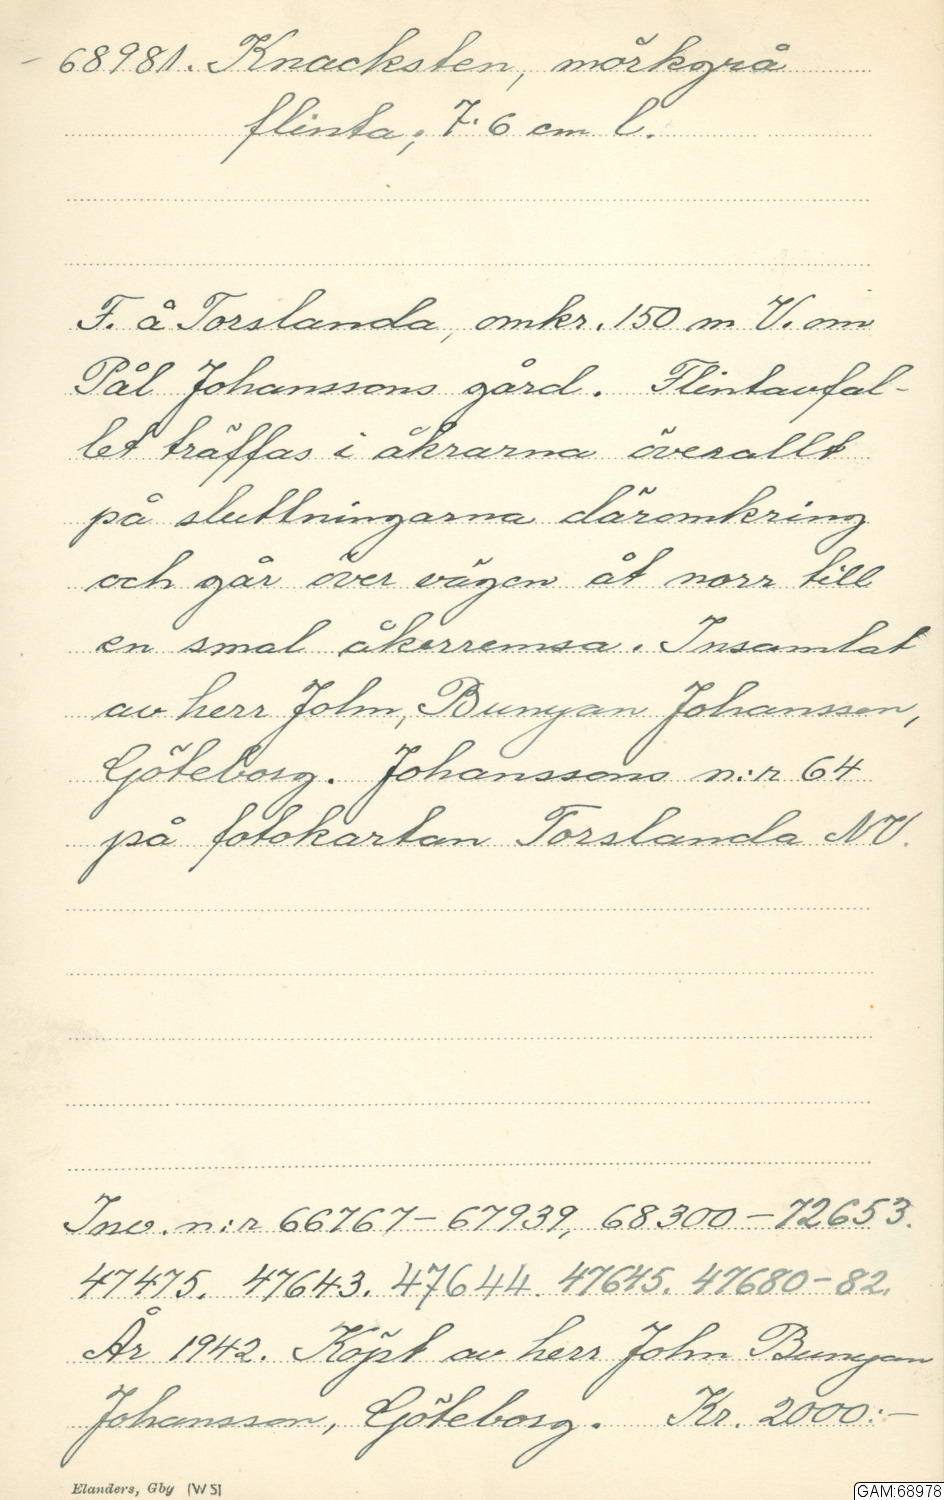 68981. Knacksten, mörkgrå
flinta; 7.6 cm l.
F. å Torslanda, omkr. 150 m V. om
Pål Johanssons gård. Flintavfal-
let träffas i åkrarna överallt
på sluttningarna däromkring
och går över vägen åt norr till
en smal åkerremsa. Insamlat
av herr John, Bunyan Johansson,
Göteborg. Johanssons n:r 64
på fotokartan Torslanda NV.
Inv. n:r 66767-67939, 68300-72653.
47475. 47643. 47644. 47645. 47680-82.
År 1942. Köpt av herr John Bunyan
Johansson, Göteborg. Kr. 2000:-
Elanders, Gby (WS)
GAM:68978